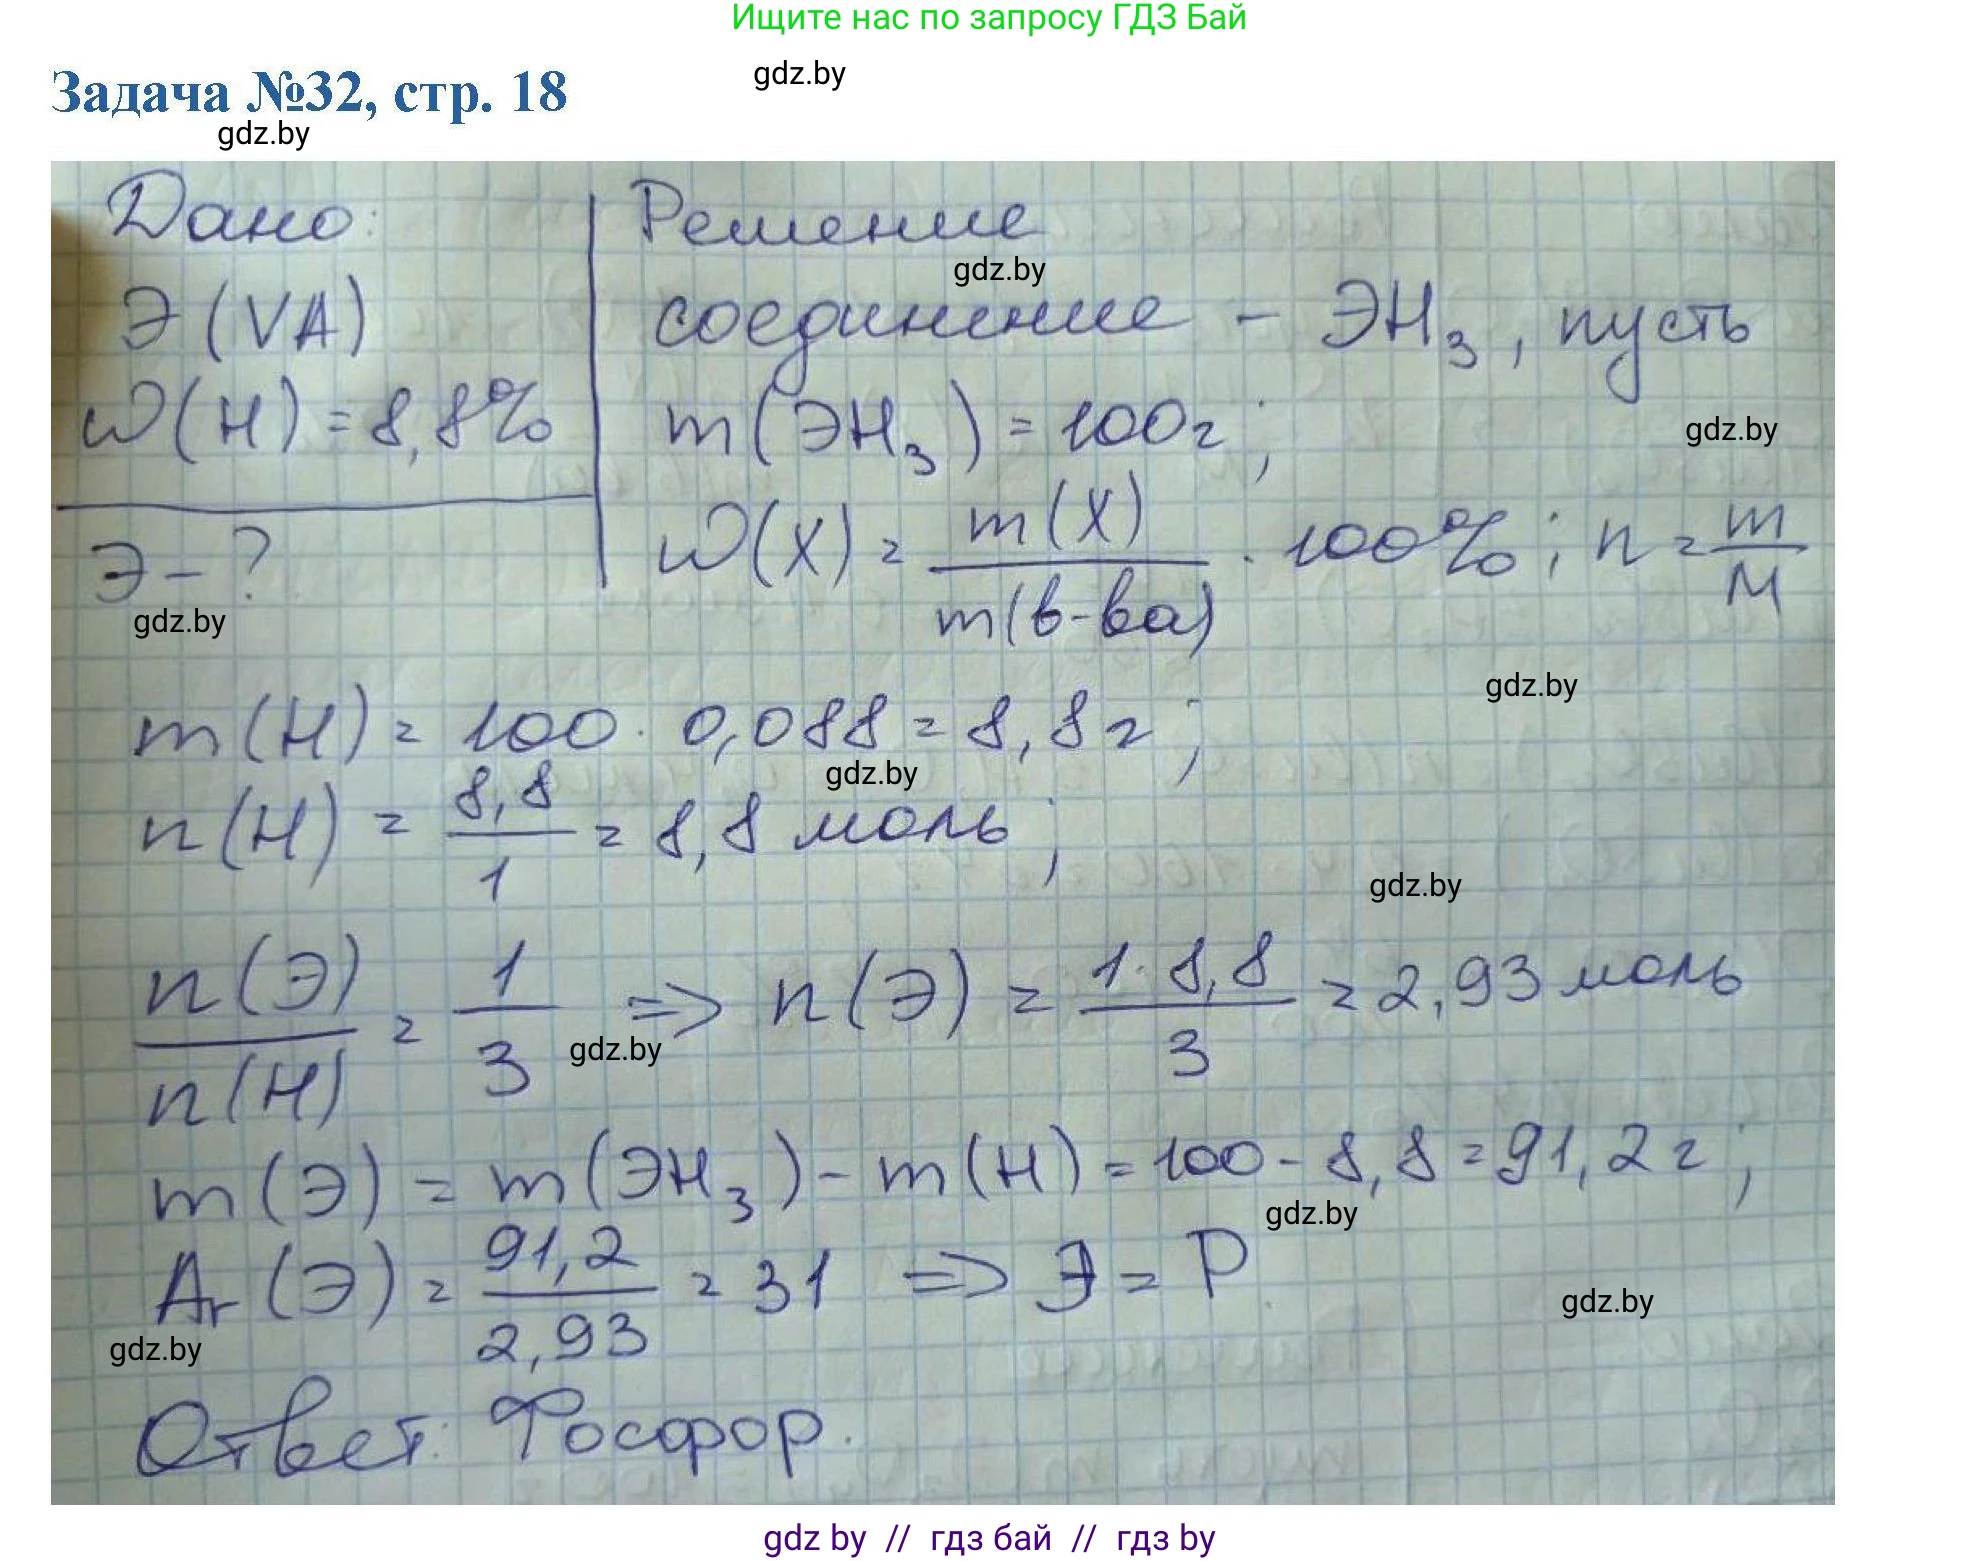 Ищите нас по запросу ГДЗ Бай
gdz.by
Задача №32, стр. 18
gdz.by
Дано:
Э (VA)
W(H) = 8,8%
Э - ?
gdz.by
Решение
gdz.by
соединение - ЭH₃, пусть
m(ЭH₃) = 100г;
gdz.by
W(X) = m(X) / m(в-ва) · 100%; n = m / M
gdz.by
m(H) = 100 · 0,088 = 8,8г;
gdz.by
n(H) = 8,8 / 1 = 8,8 моль;
gdz.by
n(Э) / n(H) = 1 / 3 => n(Э) = 1 · 8,8 / 3 = 2,93 моль
gdz.by
m(Э) = m(ЭH₃) - m(H) = 100 - 8,8 = 91,2г;
gdz.by
Ar(Э) = 91,2 / 2,93 = 31 => Э = P
gdz.by
gdz.by
Ответ: Фосфор.
gdz by // гдз бай // гдз by